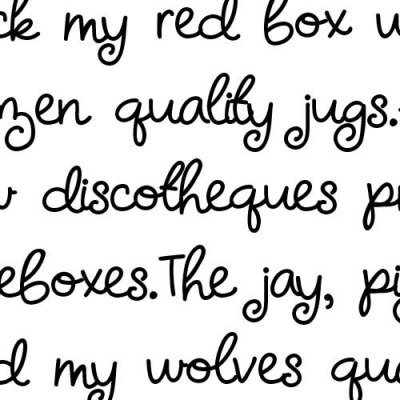 ck my red box w
zen quality jugs.
discotheques p
eboxes.The jay, pi
d my wolves qua